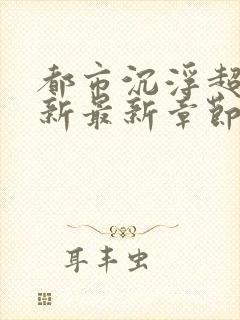 都市沉浮超
新最新章節
耳丰虫